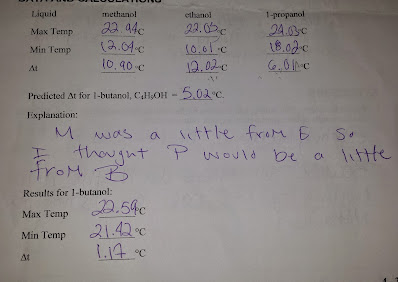 DATA AND CALCULATIONS
Liquid methanol ethanol 1-propanol
Max Temp 22.94°C 22.03°C 24.03°C
Min Temp 12.04°C 10.01°C 18.02°C
Δt 10.90°C 12.02°C 6.01°C
Predicted Δt for 1-butanol, C₄H₉OH = 5.02°C.
Explanation:
M was a little from E so
I thought P would be a little
from B
Results for 1-butanol:
Max Temp 22.59°C
Min Temp 21.42°C
Δt 1.17°C